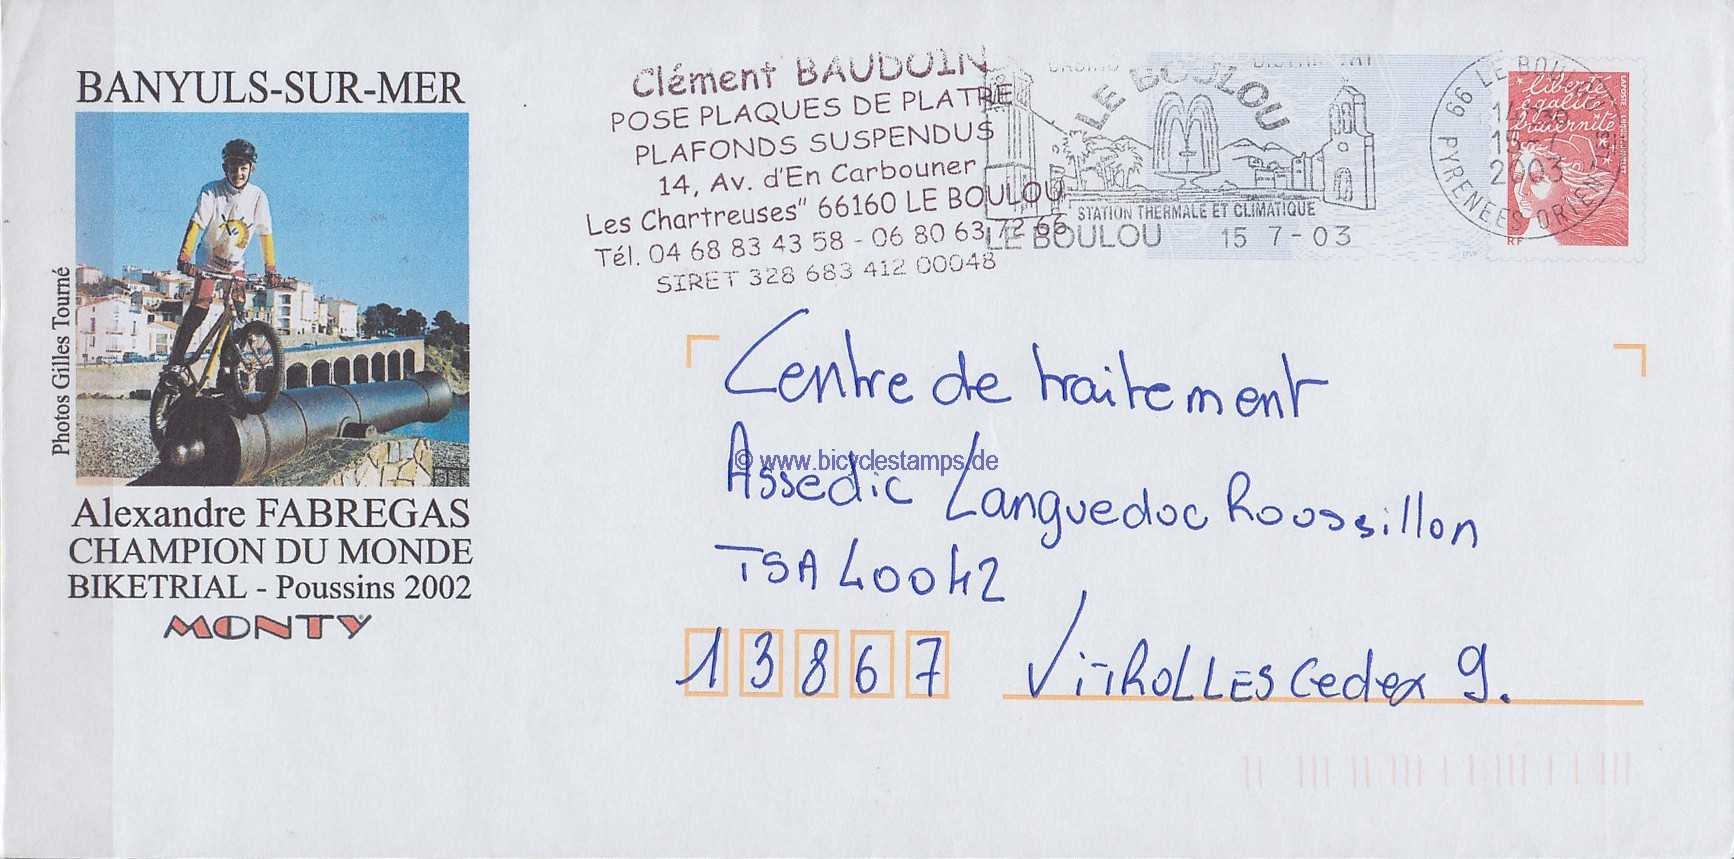 BANYULS-SUR-MER
Photos Gilles Tourné
Alexandre FABREGAS
CHAMPION DU MONDE
BIKETRIAL - Poussins 2002
MONTY
Clément BAUDUIN
POSE PLAQUES DE PLATRE
PLAFONDS SUSPENDUS
14, Av. d'En Carbouner
Les Chartreuses" 66160 LE BOULOU
Tél. 04 68 83 43 58 - 06 80 63 72 66
SIRET 328 683 412 00048
LE BOULOU
STATION THERMALE ET CLIMATIQUE
LE BOULOU 15 7-03
66 LE BOULOU
2003
PYRENEES ORIENT
liberté
égalité
fraternité
RF
LA POSTE
Centre de traitement
© www.bicyclestamps.de
Assedic Languedoc Roussillon
TSA 40042
13867 VITROLLES Cedex 9.